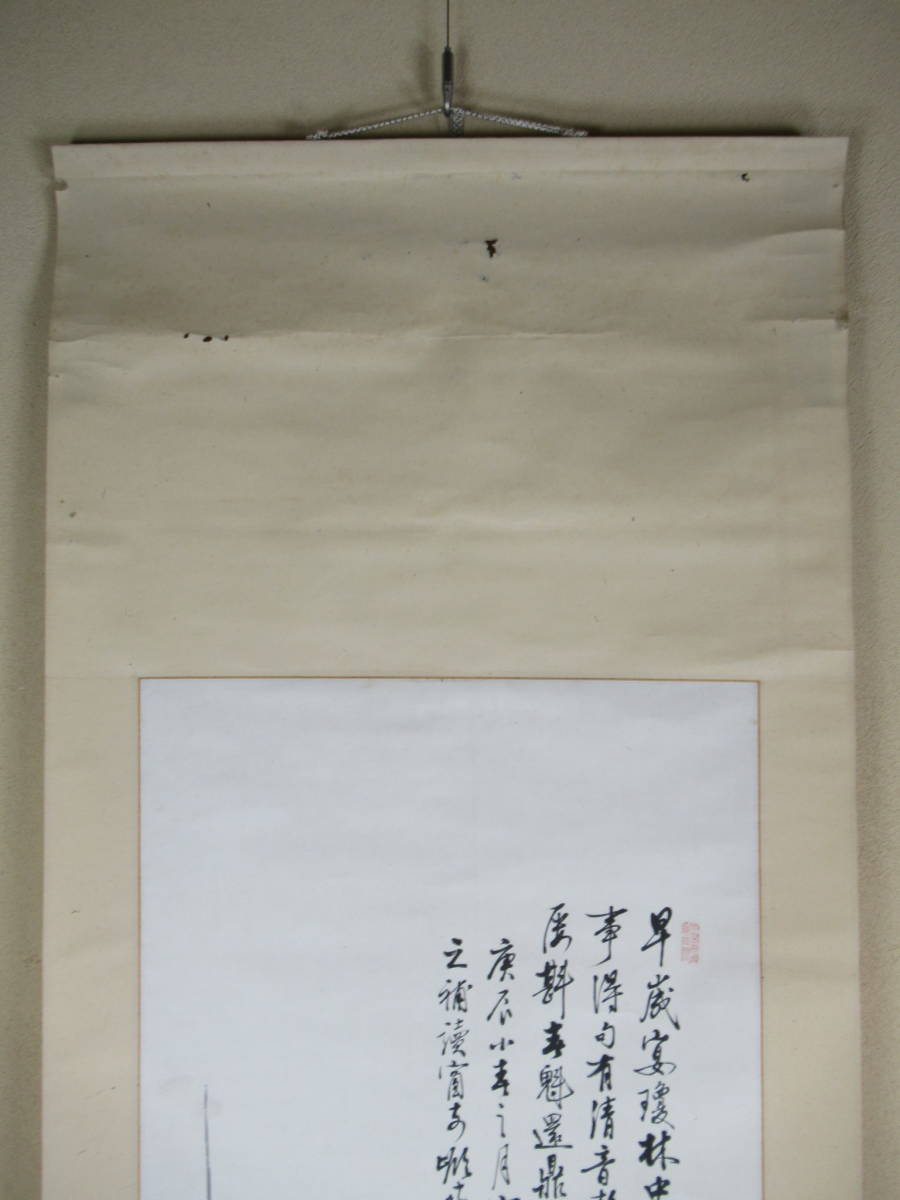 早歲宴瓊林中
事得句有清音
屢斟春魁還鼎
庚辰小春之月
之補讀窗